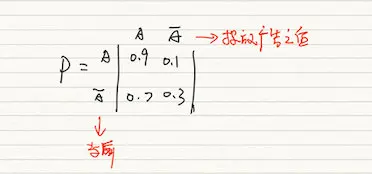 A Ā → 投放广告之值
P = A 0.9 0.1
Ā 0.7 0.3
当前